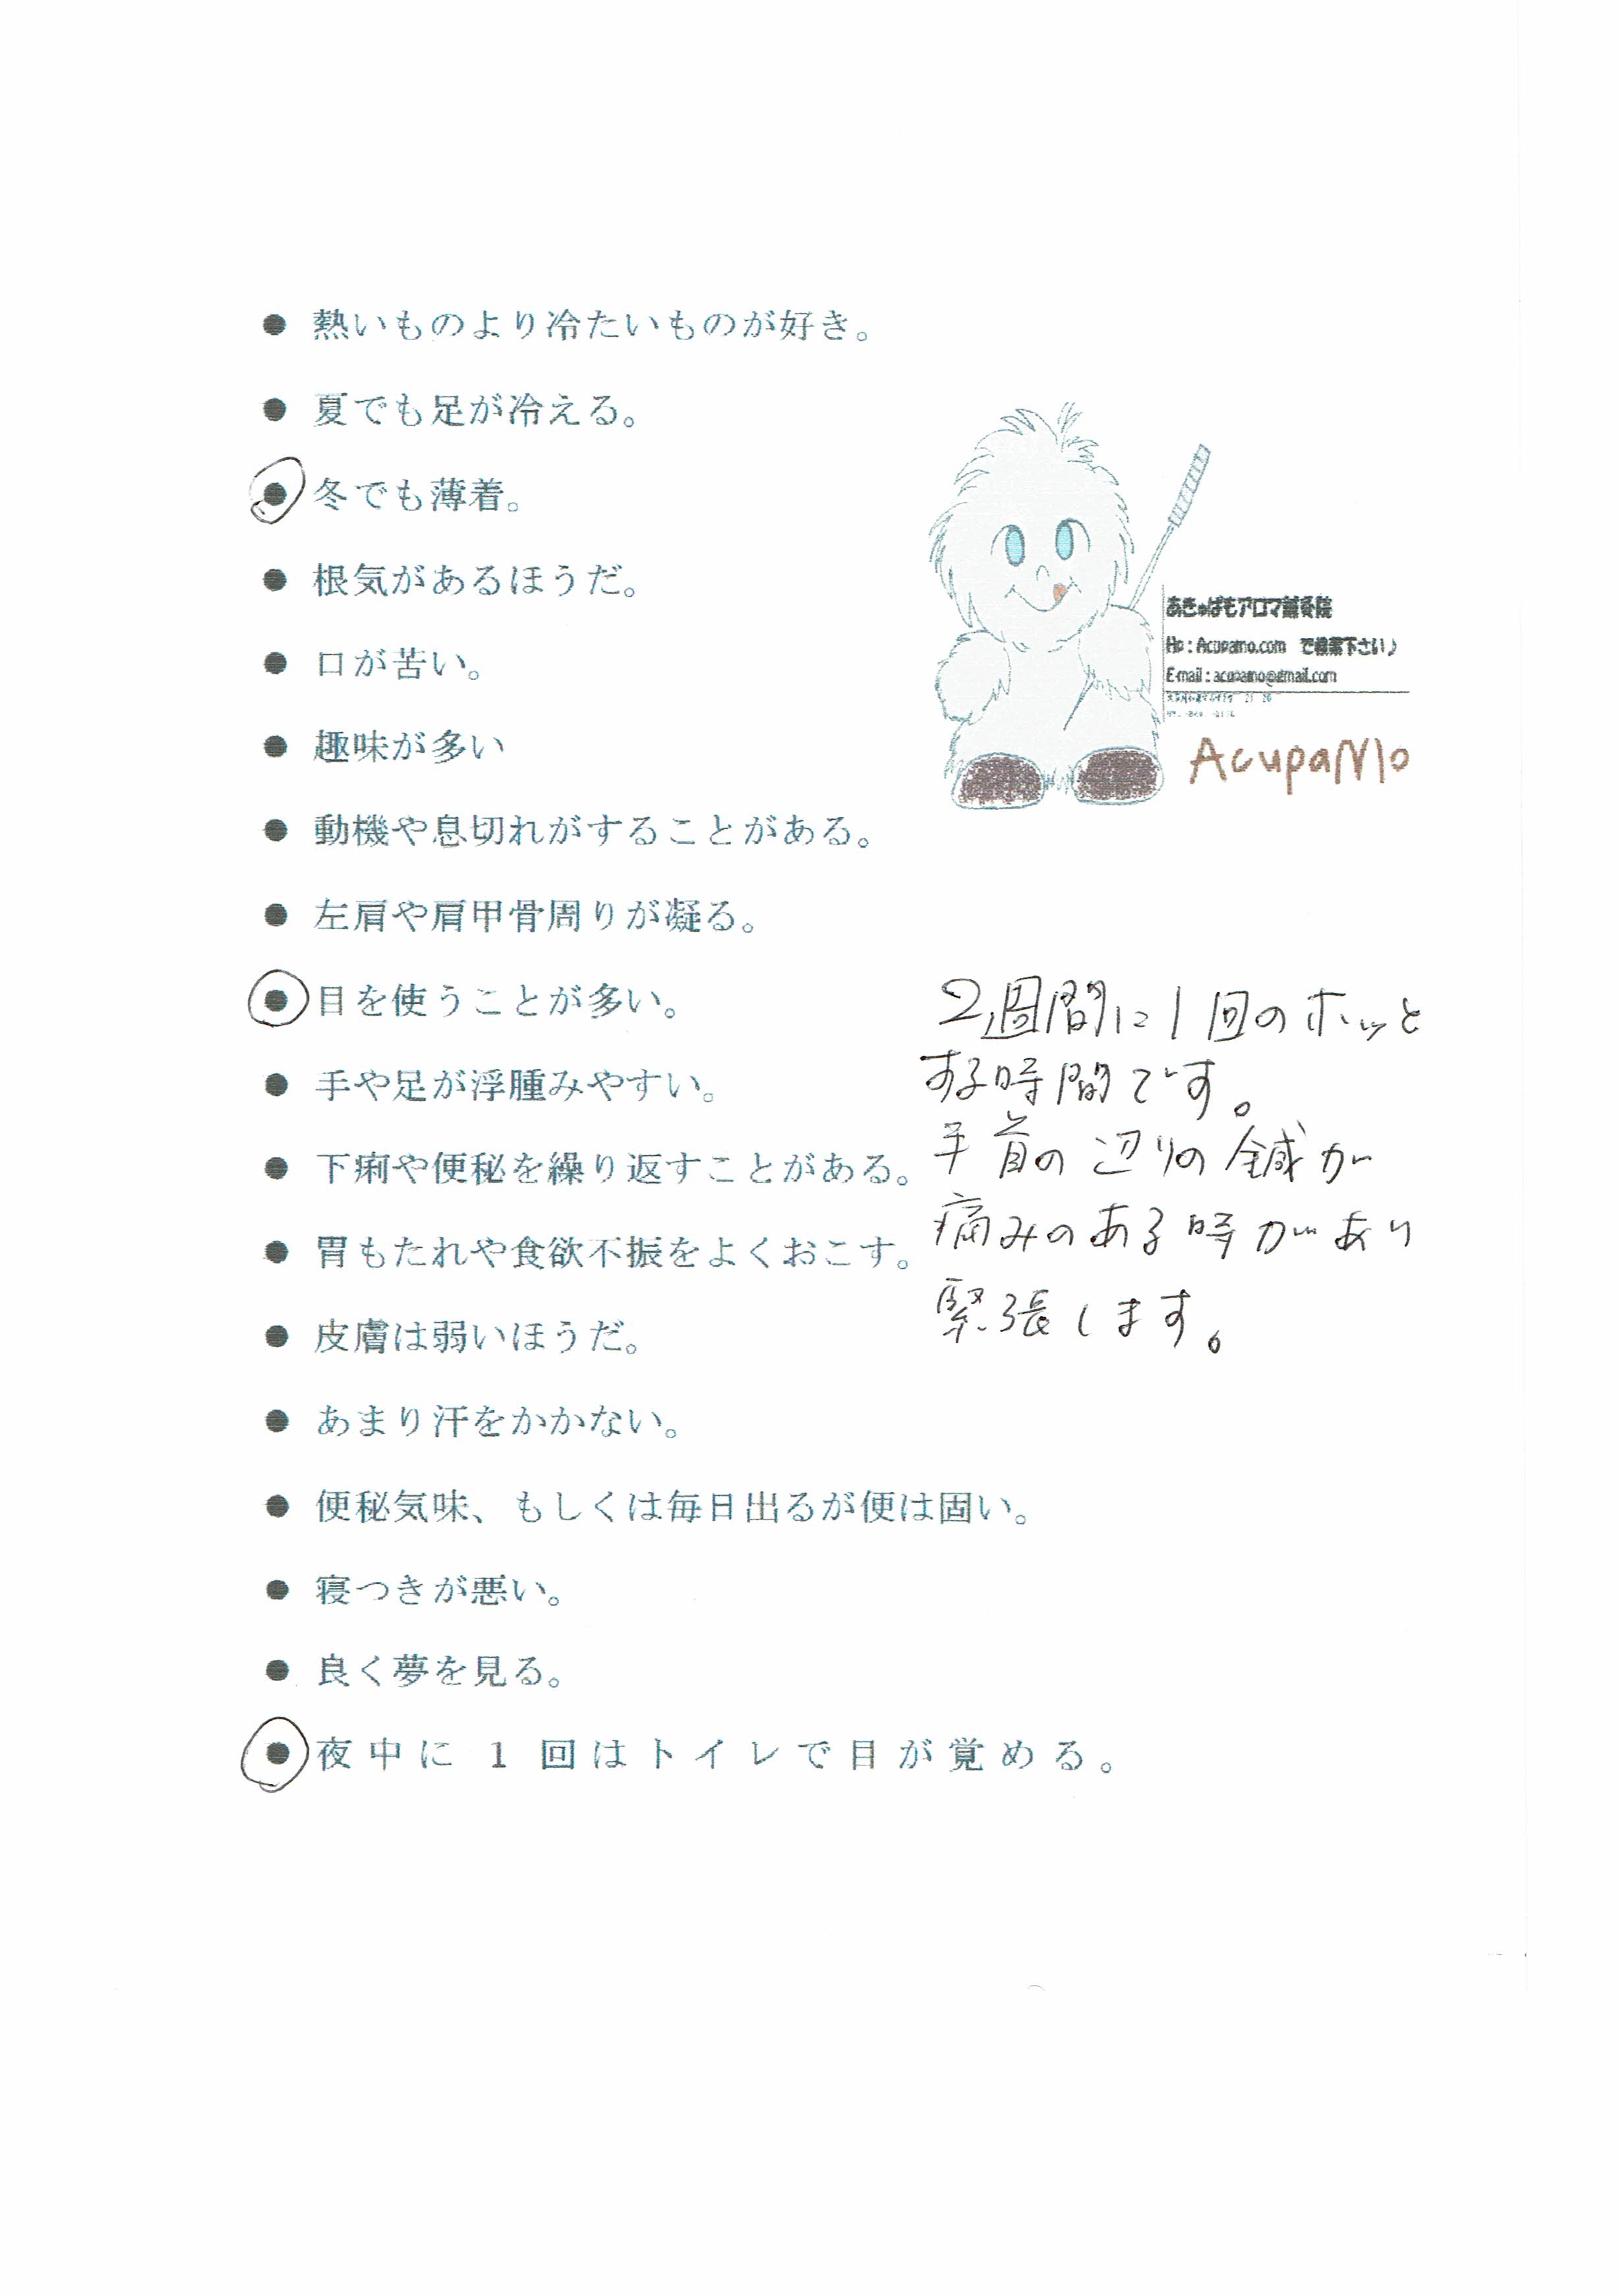 ● 熱いものより冷たいものが好き。
● 夏でも足が冷える。
● 冬でも薄着。
● 根気があるほうだ。
● 口が苦い。
● 趣味が多い
● 動機や息切れがすることがある。
● 左肩や肩甲骨周りが凝る。
● 目を使うことが多い。
● 手や足が浮腫みやすい。
● 下痢や便秘を繰り返すことがある。
● 胃もたれや食欲不振をよくおこす。
● 皮膚は弱いほうだ。
● あまり汗をかかない。
● 便秘気味、もしくは毎日出るが便は固い。
● 寝つきが悪い。
● 良く夢を見る。
● 夜中に 1 回はトイレで目が覚める。
あきゅぱもアロマ鍼灸院
Hp : Acupamo.com で検索下さい♪
E-mail : acupamo@gmail.com
AcupaMo
2週間に1回のホッと
する時間です。
手首の辺りの鍼が
痛みのある時があり
緊張します。